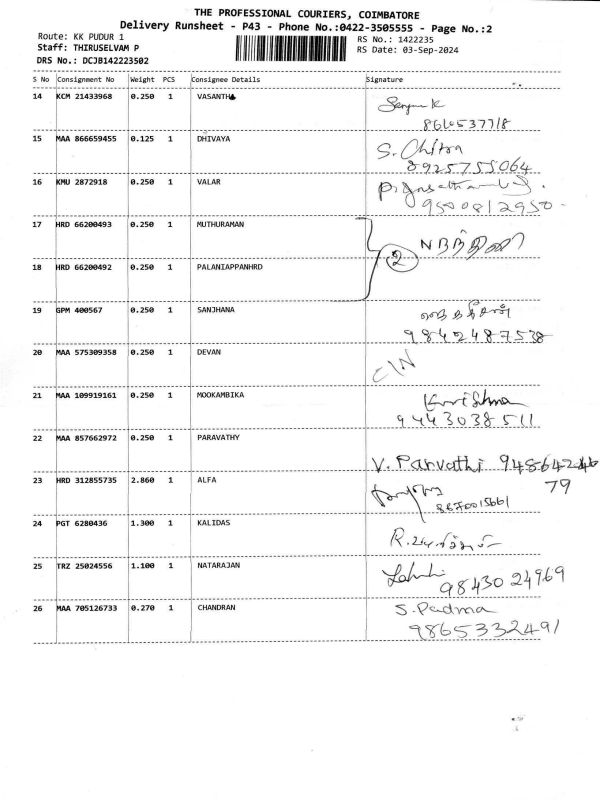 THE PROFESSIONAL COURIERS, COIMBATORE
Delivery Runsheet - P43 - Phone No.:0422-3505555 - Page No.:2
Route: KK PUDUR 1
RS No.: 1422235
Staff: THIRUSELVAM P
RS Date: 03-Sep-2024
DRS No.: DCJB142223502
S No Consignment No Weight PCS Consignee Details Signature
14 KCM 21433968 0.250 1 VASANTHA
8610537718
15 MAA 866659455 0.125 1 DHIVAYA S. Chitra
8925755064
16 KMU 2872918 0.250 1 VALAR
9500812950
17 HRD 66200493 0.250 1 MUTHURAMAN
2
18 HRD 66200492 0.250 1 PALANIAPPANHRD
19 GPM 400567 0.250 1 SANJHANA
9842487538
20 MAA 575309358 0.250 1 DEVAN C/N
21 MAA 109919161 0.250 1 MOOKAMBIKA Krishna
9443038511
22 MAA 857662972 0.250 1 PARAVATHY
V. Parvathi
79
23 HRD 312855735 2.860 1 ALFA
8870015661
24 PGT 6280436 1.300 1 KALIDAS
25 TRZ 25024556 1.100 1 NATARAJAN
9843024969
26 MAA 705126733 0.270 1 CHANDRAN S. Padma
9865332491